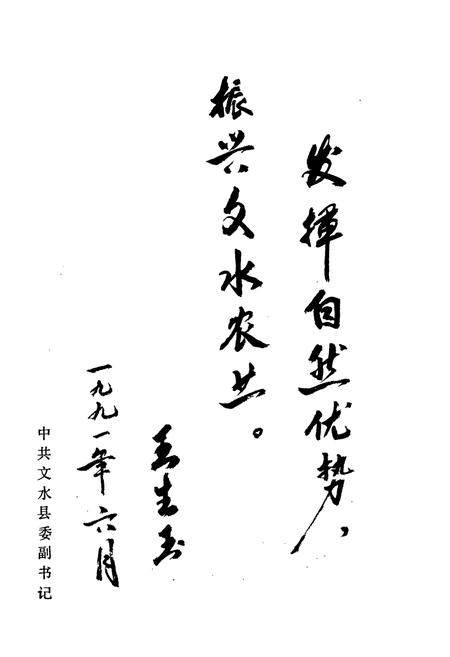 发挥自然优势，
振兴文水农业。
王生玉
一九九一年六月
中共文水县委副书记